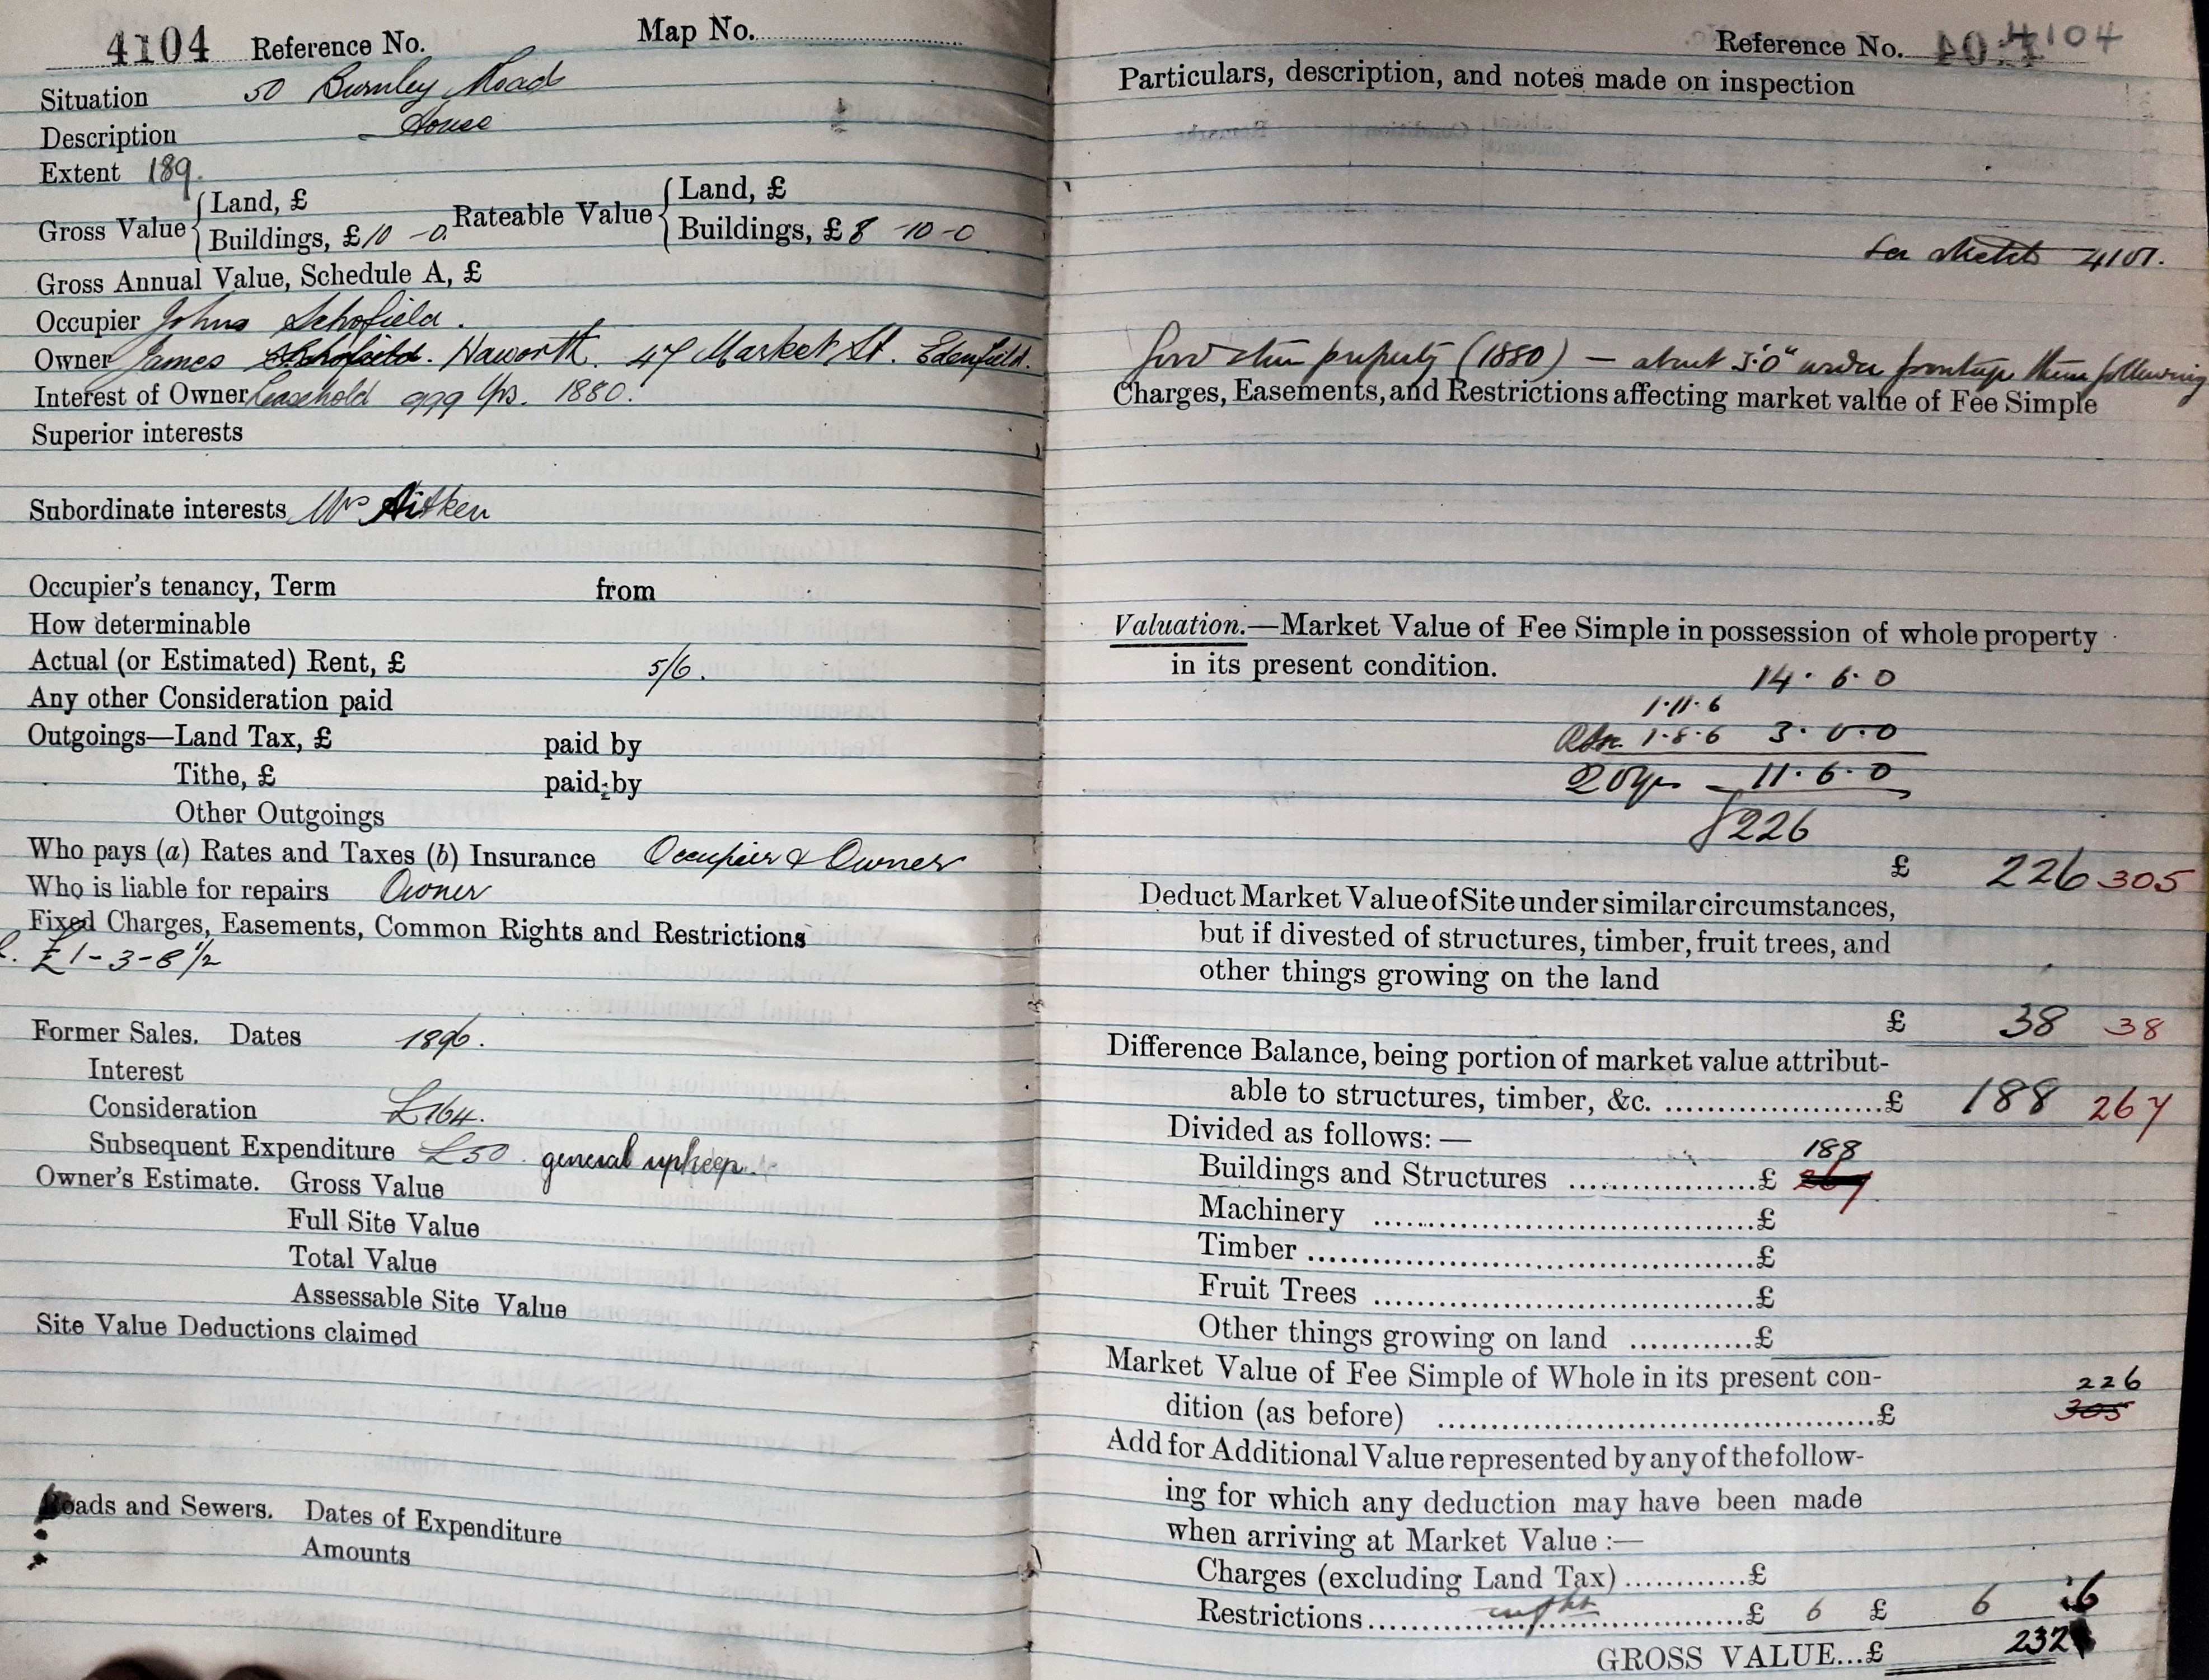 4104 Reference No. Map No.
Situation 50 Burnley Road
Description House
Extent 189.
Gross Value { Land, £
Buildings, £ 10 - 0. Rateable Value { Land, £
Buildings, £ 8 - 10 - 0
Gross Annual Value, Schedule A, £
Occupier John Schofield.
Owner James Schofield. Haworth. 47 Market St. Edenfield.
Interest of Owner Leasehold 999 Yrs. 1880.
Superior interests
Subordinate interests Mrs Aitken
Occupier's tenancy, Term from
How determinable
Actual (or Estimated) Rent, £ 5/6.
Any other Consideration paid
Outgoings—Land Tax, £ paid by
Tithe, £ paid by
Other Outgoings
Who pays (a) Rates and Taxes (b) Insurance Occupier & Owner
Who is liable for repairs Owner
Fixed Charges, Easements, Common Rights and Restrictions
£1-3-8 1/2
Former Sales. Dates 1896.
Interest
Consideration £164.
Subsequent Expenditure £50. general upkeep.
Owner's Estimate. Gross Value
Full Site Value
Total Value
Assessable Site Value
Site Value Deductions claimed
Roads and Sewers. Dates of Expenditure
Amounts
Reference No. 4104
Particulars, description, and notes made on inspection
See sketch 4101.
Good stone property (1880) — about 3'.0" wider frontage than following
Charges, Easements, and Restrictions affecting market value of Fee Simple
Valuation.—Market Value of Fee Simple in possession of whole property
in its present condition.
14. 6. 0
1.11.6
1.8.6 3.0.0
20 yrs 11.6.0
£226
£ 226 305
Deduct Market Value of Site under similar circumstances,
but if divested of structures, timber, fruit trees, and
other things growing on the land
£ 38 38
Difference Balance, being portion of market value attribut-
able to structures, timber, &c. £ 188 267
Divided as follows:—
188
Buildings and Structures £ 267
Machinery £
Timber £
Fruit Trees £
Other things growing on land £
Market Value of Fee Simple of Whole in its present con-
226
dition (as before) £ 305
Add for Additional Value represented by any of the follow-
ing for which any deduction may have been made
when arriving at Market Value :—
Charges (excluding Land Tax) £
Restrictions £ 6 £ 6 6
GROSS VALUE...£ 232